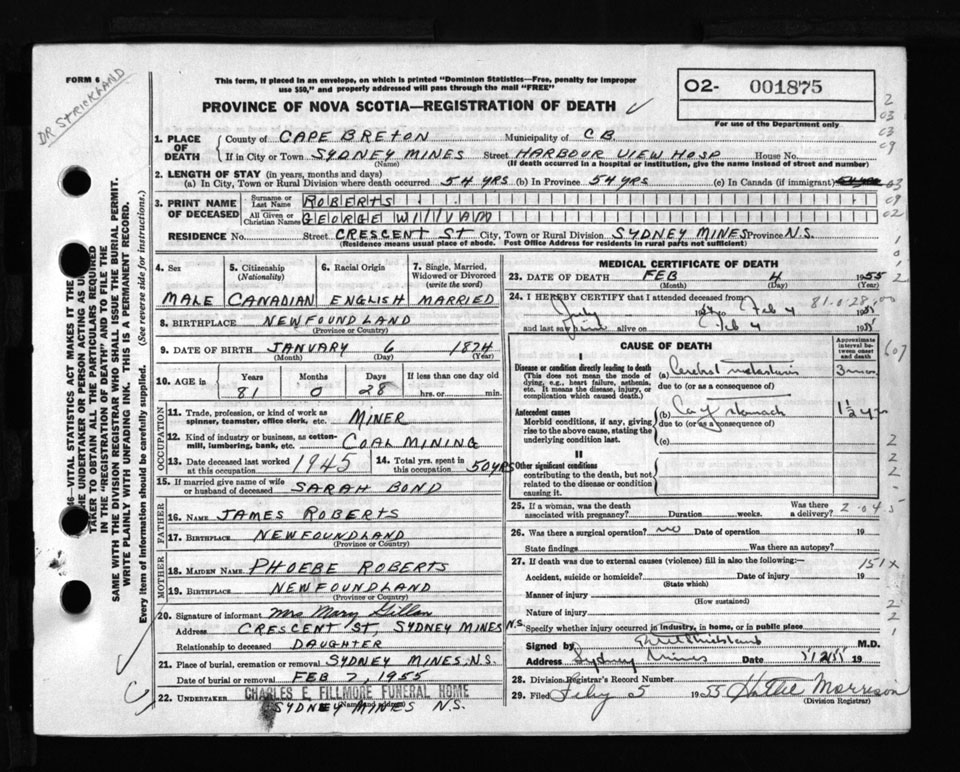 FORM 6
DR STRICKLAND
This form, if placed in an envelope, on which is printed "Dominion Statistics—Free, penalty for improper
use $50," and properly addressed will pass through the mail "FREE"
PROVINCE OF NOVA SCOTIA—REGISTRATION OF DEATH
02- 001875
For use of the Department only
1. PLACE OF DEATH
County of CAPE BRETON Municipality of C B
If in City or Town SYDNEY MINES Street HARBOUR VIEW HOSP House No.
(Name) (If death occurred in a hospital or institution, give the name instead of street and number)
2. LENGTH OF STAY (in years, months and days)
(a) In City, Town or Rural Division where death occurred 54 YRS (b) In Province 54 YRS (c) In Canada (if immigrant)
3. PRINT NAME OF DECEASED
Surname or Last Name ROBERTS
All Given or Christian Names GEORGE WILLIAM
RESIDENCE No. Street CRESCENT ST City, Town or Rural Division SYDNEY MINES Province N.S.
(Residence means usual place of abode. Post Office Address for residents in rural parts not sufficient)
4. Sex 5. Citizenship (Nationality) 6. Racial Origin 7. Single, Married, Widowed or Divorced (write the word)
MALE CANADIAN ENGLISH MARRIED
8. BIRTHPLACE NEWFOUNDLAND
(Province or Country)
9. DATE OF BIRTH JANUARY 6 1874
(Month) (Day) (Year)
10. AGE in Years Months Days If less than one day
81 0 28 hrs. or min.
OCCUPATION
11. Trade, profession, or kind of work as spinner, teamster, office clerk, etc. MINER
12. Kind of industry or business, as cotton-mill, lumbering, bank, etc. COAL MINING
13. Date deceased last worked at this occupation 1945 14. Total yrs. spent in this occupation 50 YRS
15. If married give name of wife or husband of deceased SARAH BOND
FATHER
16. NAME JAMES ROBERTS
17. BIRTHPLACE NEWFOUNDLAND
(Province or Country)
MOTHER
18. MAIDEN NAME PHOEBE ROBERTS
19. BIRTHPLACE NEWFOUNDLAND
(Province or Country)
20. Signature of informant Mrs Mary
Address CRESCENT ST, SYDNEY MINES N.S.
Relationship to deceased DAUGHTER
21. Place of burial, cremation or removal SYDNEY MINES, N.S.
Date of burial or removal FEB 7, 1955
22. UNDERTAKER CHARLES E. FILLMORE FUNERAL HOME
(Name and address)
SYDNEY MINES N.S.
MEDICAL CERTIFICATE OF DEATH
23. DATE OF DEATH FEB 4 1955
(Month) (Day) (Year)
24. I HEREBY CERTIFY that I attended deceased from
July 19 Feb 4 19
and last saw him alive on Feb 4 19
CAUSE OF DEATH
Approximate interval between onset and death
I
Disease or condition directly leading to death
(This does not mean the mode of dying, e.g., heart failure, asthenia, etc. It means the disease, injury, or complication which caused death.)
(a) Cerebral 3 mon
due to (or as a consequence of)
Antecedent causes
Morbid conditions, if any, giving rise to the above cause, stating the underlying condition last.
(b) Ca of stomach 1½ yr
due to (or as a consequence of)
(c)
II
Other significant conditions
contributing to the death, but not related to the disease or condition causing it.
25. If a woman, was the death associated with pregnancy? Duration weeks. Was there a delivery?
26. Was there a surgical operation? no Date of operation 19
State findings Was there an autopsy?
27. If death was due to external causes (violence) fill in also the following:—
Accident, suicide or homicide? Date of injury 19
(State which)
Manner of injury
(How sustained)
Nature of injury
Specify whether injury occurred in industry, in home, or in public place
Signed by M.D.
Address Sydney Mines Date 19
28. Division Registrar's Record Number
29. Filed Feby 5 1955 Hattie Morrison
(Division Registrar)
THE VITAL STATISTICS ACT MAKES IT THE
THE UNDERTAKER OR PERSON ACTING AS
TAKER TO OBTAIN ALL THE PARTICULARS REQUIRED
IN THE "REGISTRATION OF DEATH" AND TO FILE THE
SAME WITH THE DIVISION REGISTRAR WHO SHALL ISSUE THE BURIAL PERMIT.
WRITE PLAINLY WITH UNFADING INK. THIS IS A PERMANENT RECORD.
Every item of Information should be carefully supplied. (See reverse side for instructions.)